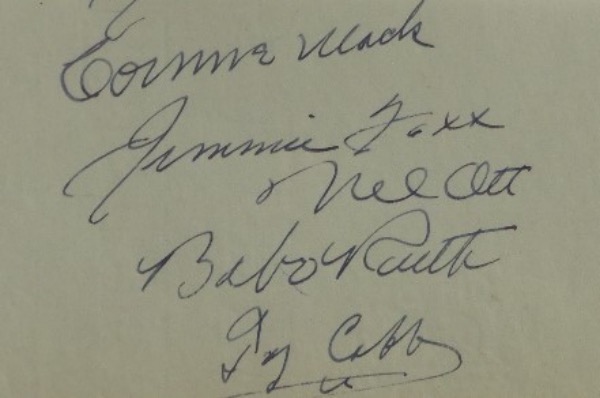 Connie Mack
Jimmie Foxx
Mel Ott
Babe Ruth
Ty Cobb